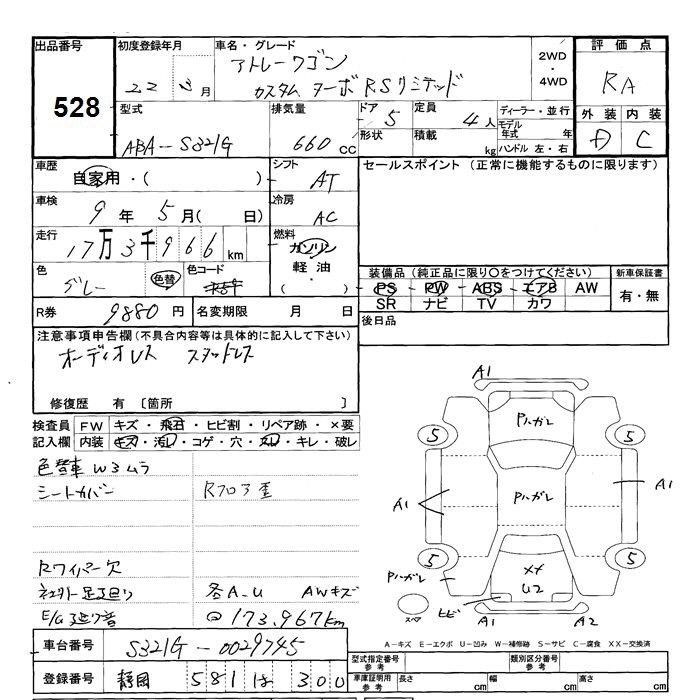 出品番号
528
初度登録年月
22 3月
車名・グレード
アトレーワゴン
カスタム ターボRSリミテッド
2WD
・
4WD
評価点
RA
外装 内装
D C
型式
ABA-S321G
排気量
660 cc
ドア 5
定員 4人
形状
積載 kg
ディーラー・並行
モデル年式 年
ハンドル 左・右
車歴
自家用・( )
シフト
AT
セールスポイント (正常に機能するものに限ります)
車検
9年 5月( 日)
冷房
AC
走行
17万3千966km
燃料
ガソリン
・
軽油
・
( )
色
グレー
色替
色コード
装備品(純正品に限り〇をつけてください)
PS PW ABS エアB AW
SR ナビ TV カワ
新車保証書
有・無
R券 9880円
名変期限 月 日
後日品
注意事項申告欄(不具合内容等は具体的に記入して下さい)
オーディオレス スタッドレス
修復歴 有 〔箇所 〕
検査員記入欄
FW キズ・飛石・ヒビ割・リペア跡・×要
内装 キズ・汚れ・コゲ・穴・スレ・キレ・破レ
色替車 W3ムラ
シートカバー
Rフロア歪
Rワイパー欠
各A-U AWキズ
E/G廻り音
@173,967km
車台番号 S321G-0029745
登録番号 静岡 581 は 300
A1
Pハガレ
5
5
A1
Pハガレ
A1
5
5
Pハガレ
XX
U2
スペア
ヒビ
A1
A2
A-キズ E-エクボ U-凹み W-補修跡 S-サビ C-腐食 XX-交換済
型式指定番号
参考
類別区分番号
参考
車庫証明用
参考
長さ cm
幅 cm
高さ cm